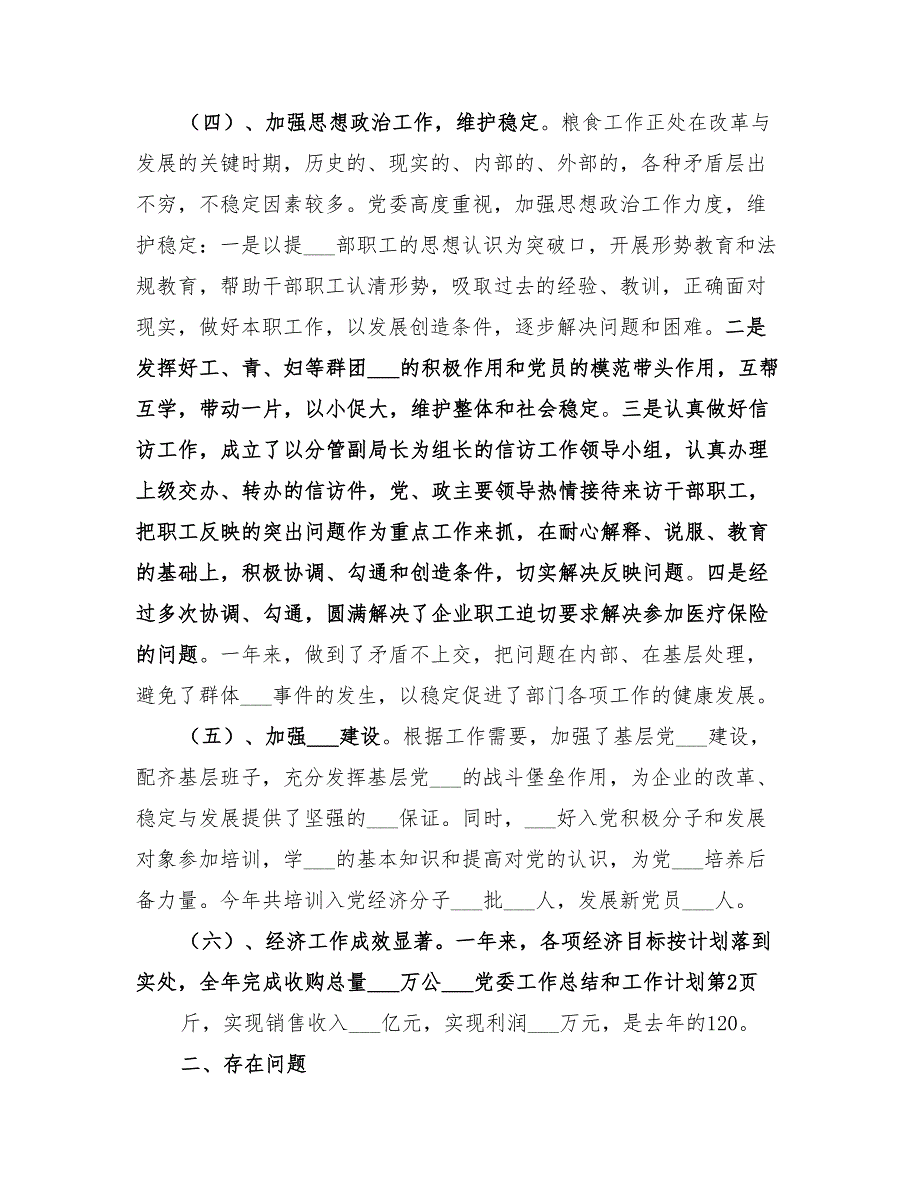 （四）、加强思想政治工作，维护稳定。粮食工作正处在改革与
发展的关键时期，历史的、现实的、内部的、外部的，各种矛盾层出
不穷，不稳定因素较多。党委高度重视，加强思想政治工作力度，维
护稳定：一是以提___部职工的思想认识为突破口，开展形势教育和法
规教育，帮助干部职工认清形势，吸取过去的经验、教训，正确面对
现实，做好本职工作，以发展创造条件，逐步解决问题和困难。二是
发挥好工、青、妇等群团___的积极作用和党员的模范带头作用，互帮
互学，带动一片，以小促大，维护整体和社会稳定。三是认真做好信
访工作，成立了以分管副局长为组长的信访工作领导小组，认真办理
上级交办、转办的信访件，党、政主要领导热情接待来访干部职工，
把职工反映的突出问题作为重点工作来抓，在耐心解释、说服、教育
的基础上，积极协调、勾通和创造条件，切实解决反映问题。四是经
过多次协调、勾通，圆满解决了企业职工迫切要求解决参加医疗保险
的问题。一年来，做到了矛盾不上交，把问题在内部、在基层处理，
避免了群体___事件的发生，以稳定促进了部门各项工作的健康发展。
（五）、加强___建设。根据工作需要，加强了基层党___建设，
配齐基层班子，充分发挥基层党___的战斗堡垒作用，为企业的改革、
稳定与发展提供了坚强的___保证。同时，___好入党积极分子和发展
对象参加培训，学___的基本知识和提高对党的认识，为党___培养后
备力量。今年共培训入党经济分子___批___人，发展新党员___人。
（六）、经济工作成效显著。一年来，各项经济目标按计划落到
实处，全年完成收购总量___万公___党委工作总结和工作计划第2页
斤，实现销售收入___亿元，实现利润___万元，是去年的120。
二、存在问题